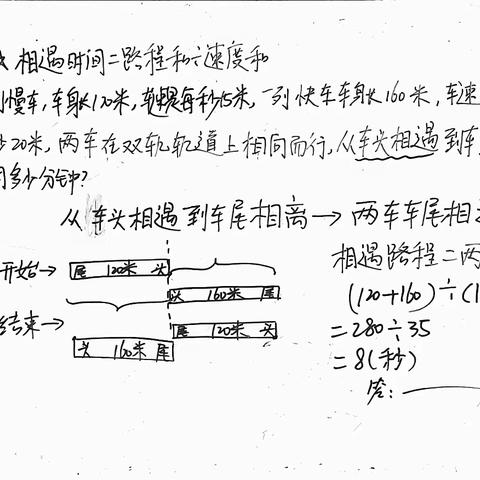 相遇时间=路程和÷速度和
慢车,车身长120米,车速是每秒15米,一列快车车身长160米,车速
20米,两车在双轨轨道上相向而行,从车头相遇到车
多少分钟?
从车头相遇到车尾相离→两车车尾相
开始→ 尾 120米 头
相遇路程=两
头 160米 尾
(120+160)÷(1
结束→ 尾 120米 头
=280÷35
头 160米 尾
=8(秒)
答: